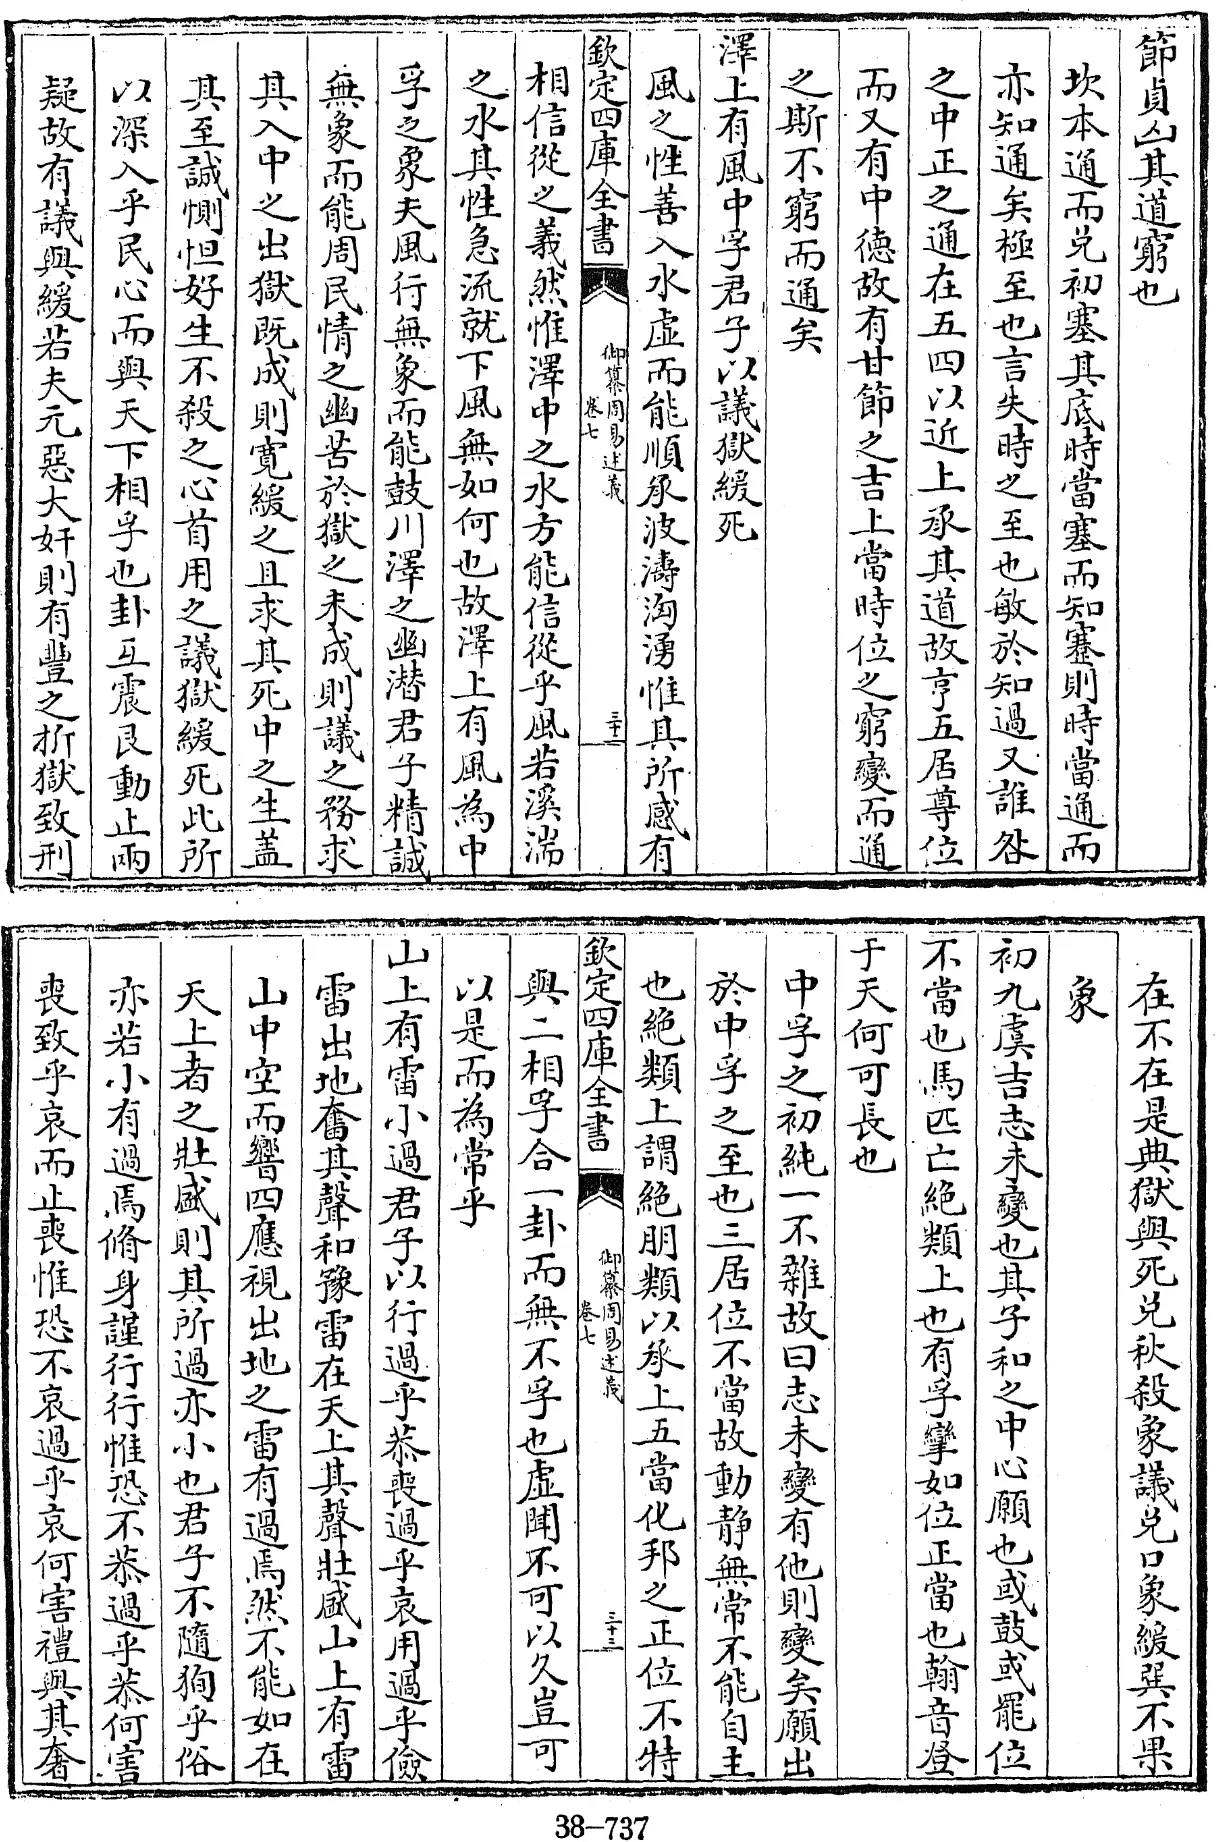 節貞凶其道窮也
坎本通而兌初塞其底時當塞而知塞則時當通而
亦知通矣極至也言失時之至也敏於知過又誰咎
之中正之通在五四以近上承其道故亨五居尊位
而又有中德故有甘節之吉上當時位之窮變而通
之斯不窮而通矣
澤上有風中孚君子以議獄緩死
風之性善入水虛而能順承波濤洶湧惟其所感有
欽定四庫全書
御纂周易述義
卷七
三十二
相信從之義然惟澤中之水方能信從乎風若溪湍
之水其性急流就下風無如何也故澤上有風為中
孚之象夫風行無象而能鼓川澤之幽潜君子精誠
無象而能周民情之幽苦於獄之未成則議之務求
其入中之出獄既成則寛緩之且求其死中之生蓋
其至誠惻怛好生不殺之心首用之議獄緩死此所
以深入乎民心而與天下相孚也卦互震艮動止兩
疑故有議與緩若夫元惡大奸則有豐之折獄致刑
在不在是典獄與死兌秋殺象議兌口象緩巽不果
象
初九虞吉志未變也其子和之中心願也或鼓或罷位
不當也馬匹亡絶類上也有孚攣如位正當也翰音登
于天何可長也
中孚之初純一不雜故曰志未變有他則變矣願出
於中孚之至也三居位不當故動静無常不能自主
也絶類上謂絶朋類以承上五當化邦之正位不特
欽定四庫全書
御纂周易述義
卷七
三十三
與二相孚合一卦而無不孚也虛聞不可以久豈可
以是而為常乎
山上有雷小過君子以行過乎恭喪過乎哀用過乎儉
雷出地奮其聲和豫雷在天上其聲壯盛山上有雷
山中空而響四應視出地之雷有過焉然不能如在
天上者之壯盛則其所過亦小也君子不隨狥乎俗
亦若小有過焉脩身謹行行惟恐不恭過乎恭何害
喪致乎哀而止喪惟恐不哀過乎哀何害禮與其奢
38-737